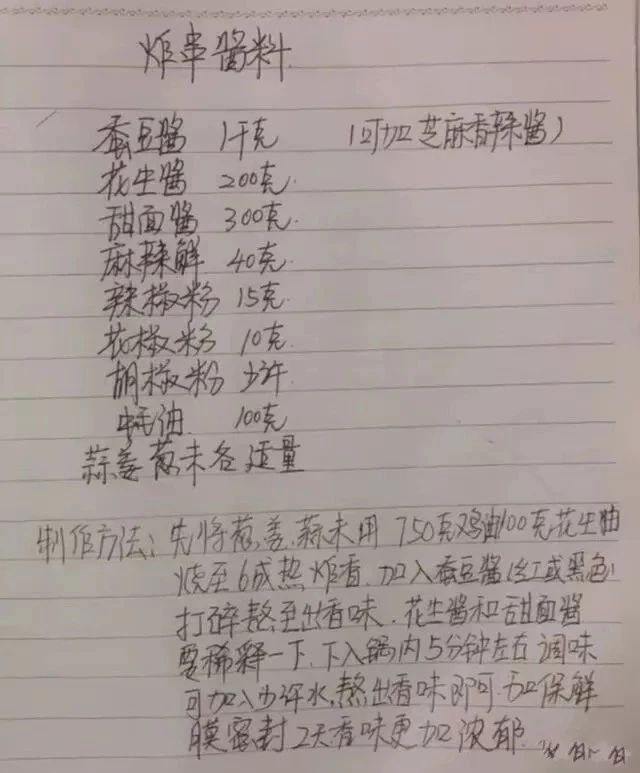 炸串酱料
蚕豆酱 1千克 (可加芝麻香辣酱)
花生酱 200克.
甜面酱 300克.
麻辣鲜 40克.
辣椒粉 15克.
花椒粉 10克.
胡椒粉 少许
蚝油. 100克
蒜姜葱末各适量
制作方法: 先将葱、姜、蒜末用 750克鸡油100克花生油
烧至6成热炸香.加入蚕豆酱(红或黑色)
打碎熬至出香味.花生酱和甜面酱
要稀释一下.下入锅内5分钟左右调味
可加入少许水,熬出香味即可.加保鲜
膜密封2天香味更加浓郁.